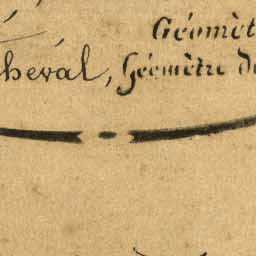 Géomèt
heval, Géomètre d